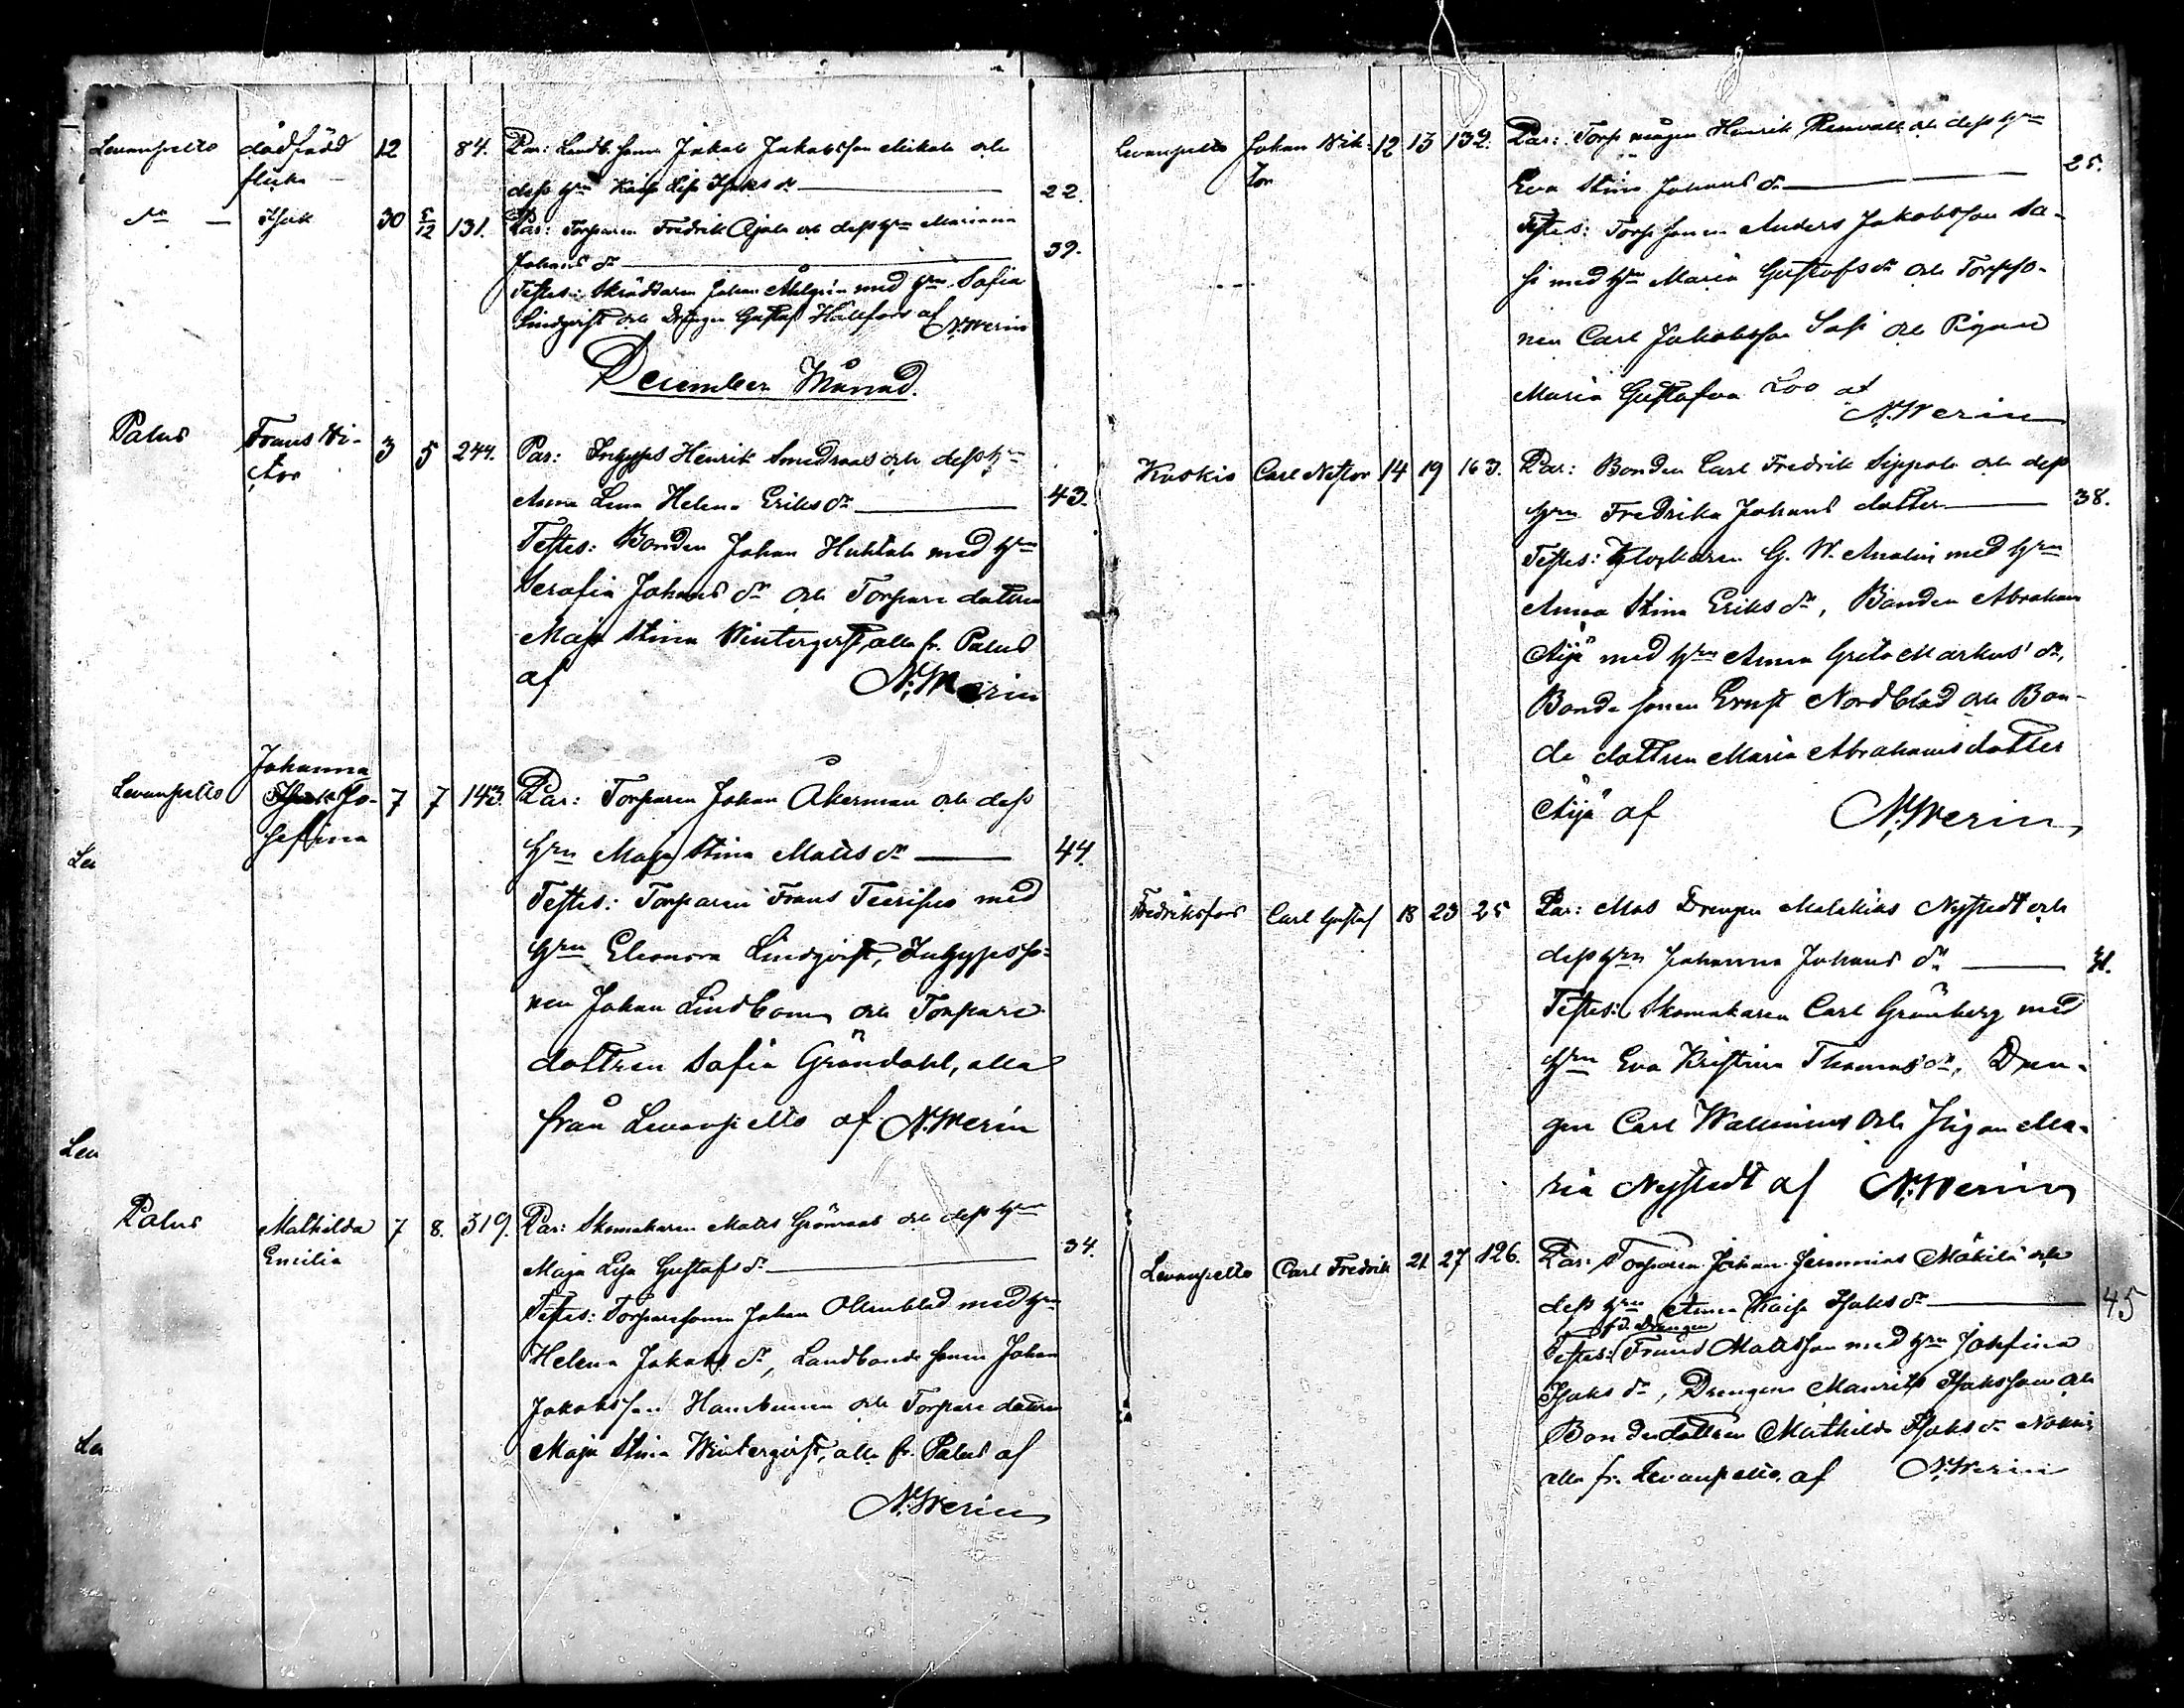 Levanpelto dödfödd 12 84. Par: Landb. sonen Jakob Jakobsson Mikola och
flicka — dess h:u Kaisa Lisa Isaks dr — 22.
do — Isak 30 5/12 131. Par: Torparen Fredrik Ojala och dess h:u Mariana
Johans dr — 39.
Testes: Skräddaren Johan Ahlgrén med h:u Sofia
Lindqvist och Drängen Gustaf Hällfors af N. Merin
December Månad.
Palus Frans Vi- 3 5 244. Par: Inhyses Henrik Smedroos och dess h:u
ctor Anna Lena Helena Eriks dr — 43.
Testes: Bonden Johan Huhtala med h:u
Serafia Johans dr och Torpare dottren
Maja Stina Winterqvist, alla fr. Palus
af N. Merin
Johanna
Levanpelto Jo- 7 7 143. Par: Torparen Johan Åkerman och dess
sefina h:u Maja Stina Matts dr — 44.
Testes: Torparen Frans Teerisuo med
h:u Eleonora Lindqvist, Inhysesso-
nen Johan Lindbom och Torpare
dottren Sofia Gröndahl, alla
från Levanpelto af N. Merin
Palus Mathilda 7 8. 319. Par: Skomakaren Matts Grönroos och dess h:u
Emilia Maja Lisa Gustafs dr — 34.
Testes: Torparesonen Johan Ollenblad med h:u
Helena Jakobs dr, Landbonde sonen Johan
Jakobsson och Torpare dottren
Maja Stina Winterqvist, alla fr. Palus af
N. Merin
Levanpelto Johan Vik- 12 13 132. Par: Torp mågen Henrik Renvall och dess h:u
tor Eva Stina Johans dr — 25.
Testes: Torp sonen Anders Jakobsson Sa-
si med h:u Maria Gustafs dr och Torpso-
nen Carl Jakobsson Sasi och Pigan
Maria Gustafva Loo af
N. Merin
Kuokis Carl Nestor 14 19 163. Par: Bonden Carl Fredrik Sippola och dess
h:u Fredrika Johans dotter — 38.
Testes: Klockaren G. W. med h:u
Anna Stina Eriks dr, Bonden Abraham
Äijä med h:u Anna Greta Markus' dr,
Bonde sonen Ernst Nordblad och Bon-
de dottren Maria Abrahamsdotter
Äijä af N. Merin
Fredriksfors Carl Gustaf 18 23 25 Par: Mas Drengen Malakias Nystedt och
dess h:u Johanna Johans dr —
Testes: Skomakaren Carl Grönberg med
h:u Eva Kristina Thomas dr, Dren-
gen Carl Wallenius och Pigan Ma-
ria Nystedt af N. Merin
Levanpelto Carl Fredrik 21 27 126. Par: Torparen Johan Jeremias Mäkilä och
dess h:u Anna Kaisa Isaks dr — 45
f.d. Drengen
Testes: Frans Matsson med h:u Josefina
Isaks dr, Drengen Maurits Isaksson och
Bondedottren Mathilda Isaks dr
alla fr. Levanpelto, af N. Merin